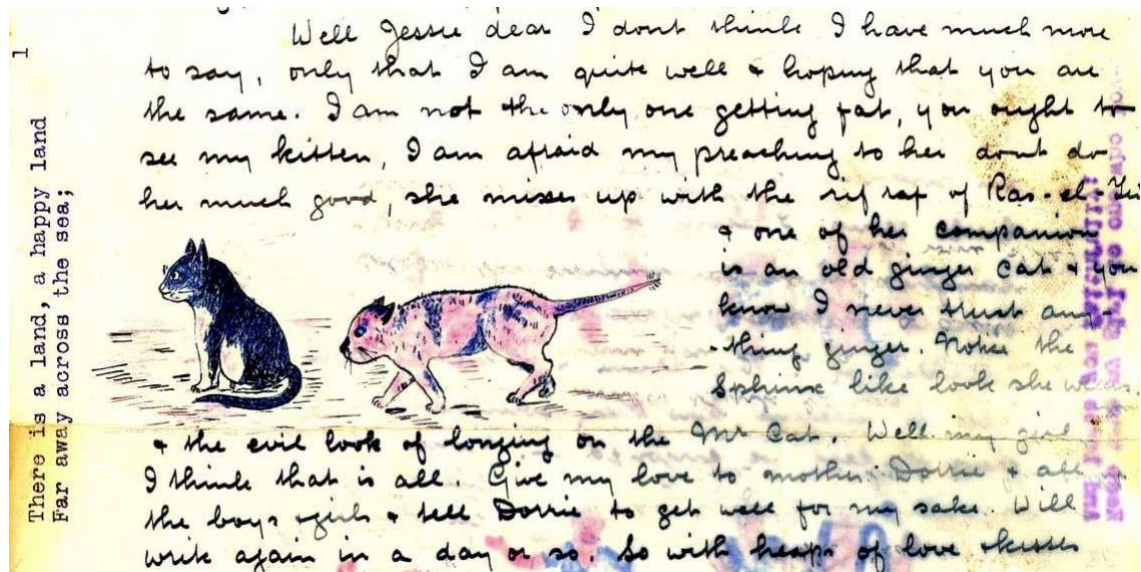 1
There is a land, a happy land
Far away across the sea;
Well Jessie dear I dont think I have much more
to say, only that I am quite well & hoping that you are
the same. I am not the only one getting fat, you ought to
see my kitten, I am afraid my preaching to her dont do
her much good, she mixes up with the rif raf of Ras-el-Tin
& one of her companion
is an old ginger cat & you
know I never trust any-
-thing ginger. Notice the
Sphinx like look she wears
& the evil look of longing on the Mr Cat. Well my girl
I think that is all. Give my love to mother Dorrie & all
the boys & girls & tell Dorrie to get well for my sake. Will
write again in a day or so. So with heaps of love & kisses